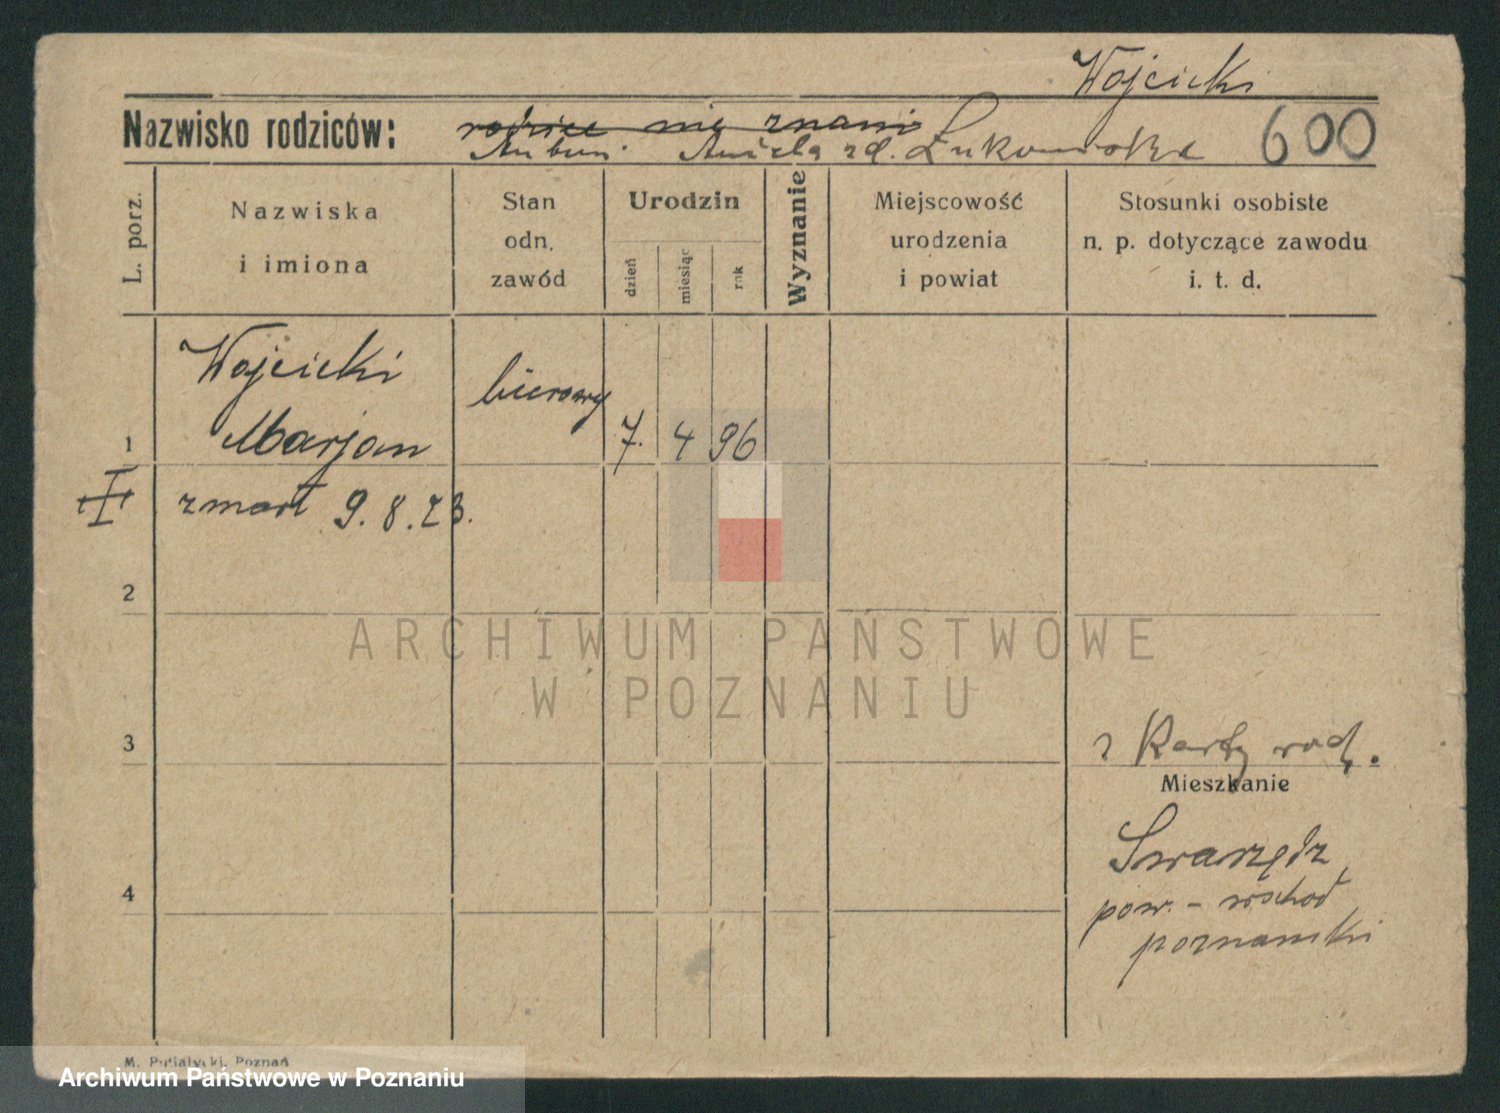 Wojcicki
Nazwisko rodziców: rodzice nie znani 600
Aniela zd. Łukowska
L. porz.
Nazwiska
i imiona
Stan
odn.
zawód
Urodzin
dzień
miesiąc
rok
Wyznanie
Miejscowość
urodzenia
i powiat
Stosunki osobiste
n. p. dotyczące zawodu
i. t. d.
Wojcicki
biurowy
1 Marjan 7. 4 96
zmarł 9. 8. 23.
2
ARCHIWUM PAŃSTWOWE
W POZNANIU
3
z Karty rodz.
Mieszkanie
Swarzędz
4
pow. - wschod
poznański
M. Putiatycki, Poznań
Archiwum Państwowe w Poznaniu